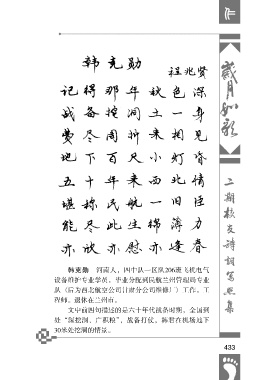 韩克勋
祖兆贤
记得那年秋色深
战备挖洞土一身
费尽周折来相见
地下百尺小灯昏
五十年来西北情
堪称民航一旧臣
能尽此生绵薄力
亦欣亦慰亦逢春
韩克勋 河南人，四中队一区队206班飞机电气
设备维护专业学员，毕业分配到民航兰州管理局专业
队（后为西北航空公司甘肃分公司维修厂）工作，工
程师。退休在兰州市。
文中前四句描述的是六十年代战备时期，全国到
处“深挖洞，广积粮”，战备打仗，韩君在机场地下
30米处挖洞的情景。
岁月如歌
二期校友诗词写照集
433